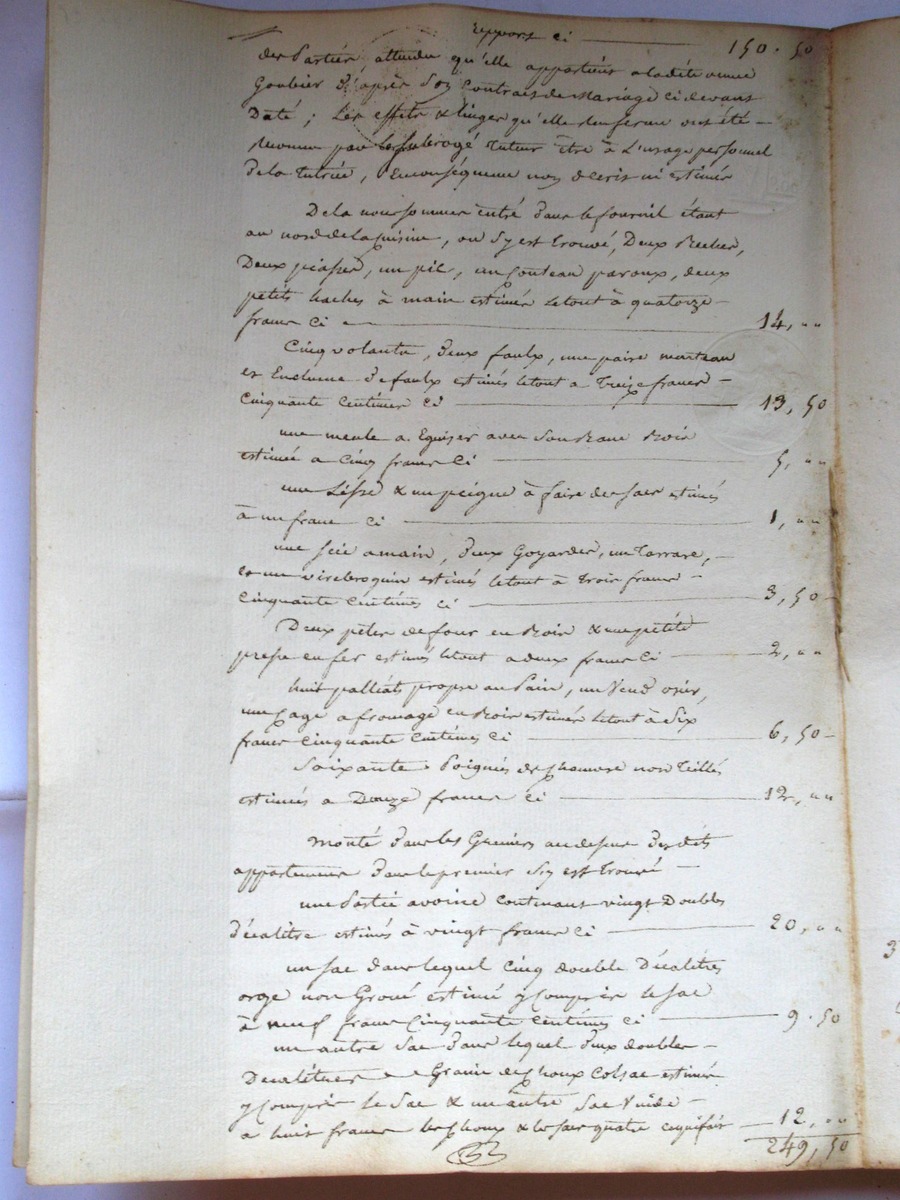 Report ci 150.50
des Parties, attendu qu'elle appartient a ladite veuve
Goubier d'après son Contrat de Mariage ci devant
Daté ; Les effets & linges qu'elle renferme ont été
reconnu par le subrogé tuteur être à L'usage personnel
de la tutrice, En conséquence non decrit ni estimés
De la nous sommes entré dans le fournil étant
au nord de la Cuisine, ou s'y est trouvé, Deux Beches,
Deux pioches, un pic, un Couteau paroux, deux
petits haches à main estimés le tout à quatorze
francs ci 14, ""
Cinq volants, deux faulx, une paire marteau
et Enclume de faulx estimés le tout a Treize francs
Cinquante Centimes ci 13, 50
une meule a Eguiser avec son Banc Bois
estimée a Cinq francs Ci 5, ""
une & un peigne à faire des sacs estimés
à un franc ci 1, ""
une scie a main, deux Goyardes, un Tarrare,
et un virebroquin estimés le tout à Trois francs
cinquante Centimes ci 3, 50
Deux pèles de four en Bois & une petite
en fer estimés le tout a deux francs Ci 2, ""
huit palliats propre au Pain, un osier,
une Cage a fromage en Bois estimés le tout à Six
francs Cinquante Centimes Ci 6, 50
Soixante Poignés de Chanvre non Teillés
estimés a Douze francs Ci 12, ""
Monté dans les Greniers au dessus desdits
appartements dans le premier s'y est trouvé
une Partie avoine Contenant vingt Doubles
Décalitre estimés à vingt francs Ci 20, ""
un sac dans lequel Cinq double Décalitres
orge non estimé y Compris le sac
à neuf francs Cinquante Centimes Ci 9.50
un autre Sac dans lequel deux doubles
Decalitres de Graine de Choux Colsac estimés
y Compris le Sac & un autre Sac Vuide
a huit francs les Choux & les sacs quatre 12, ""
249, 50